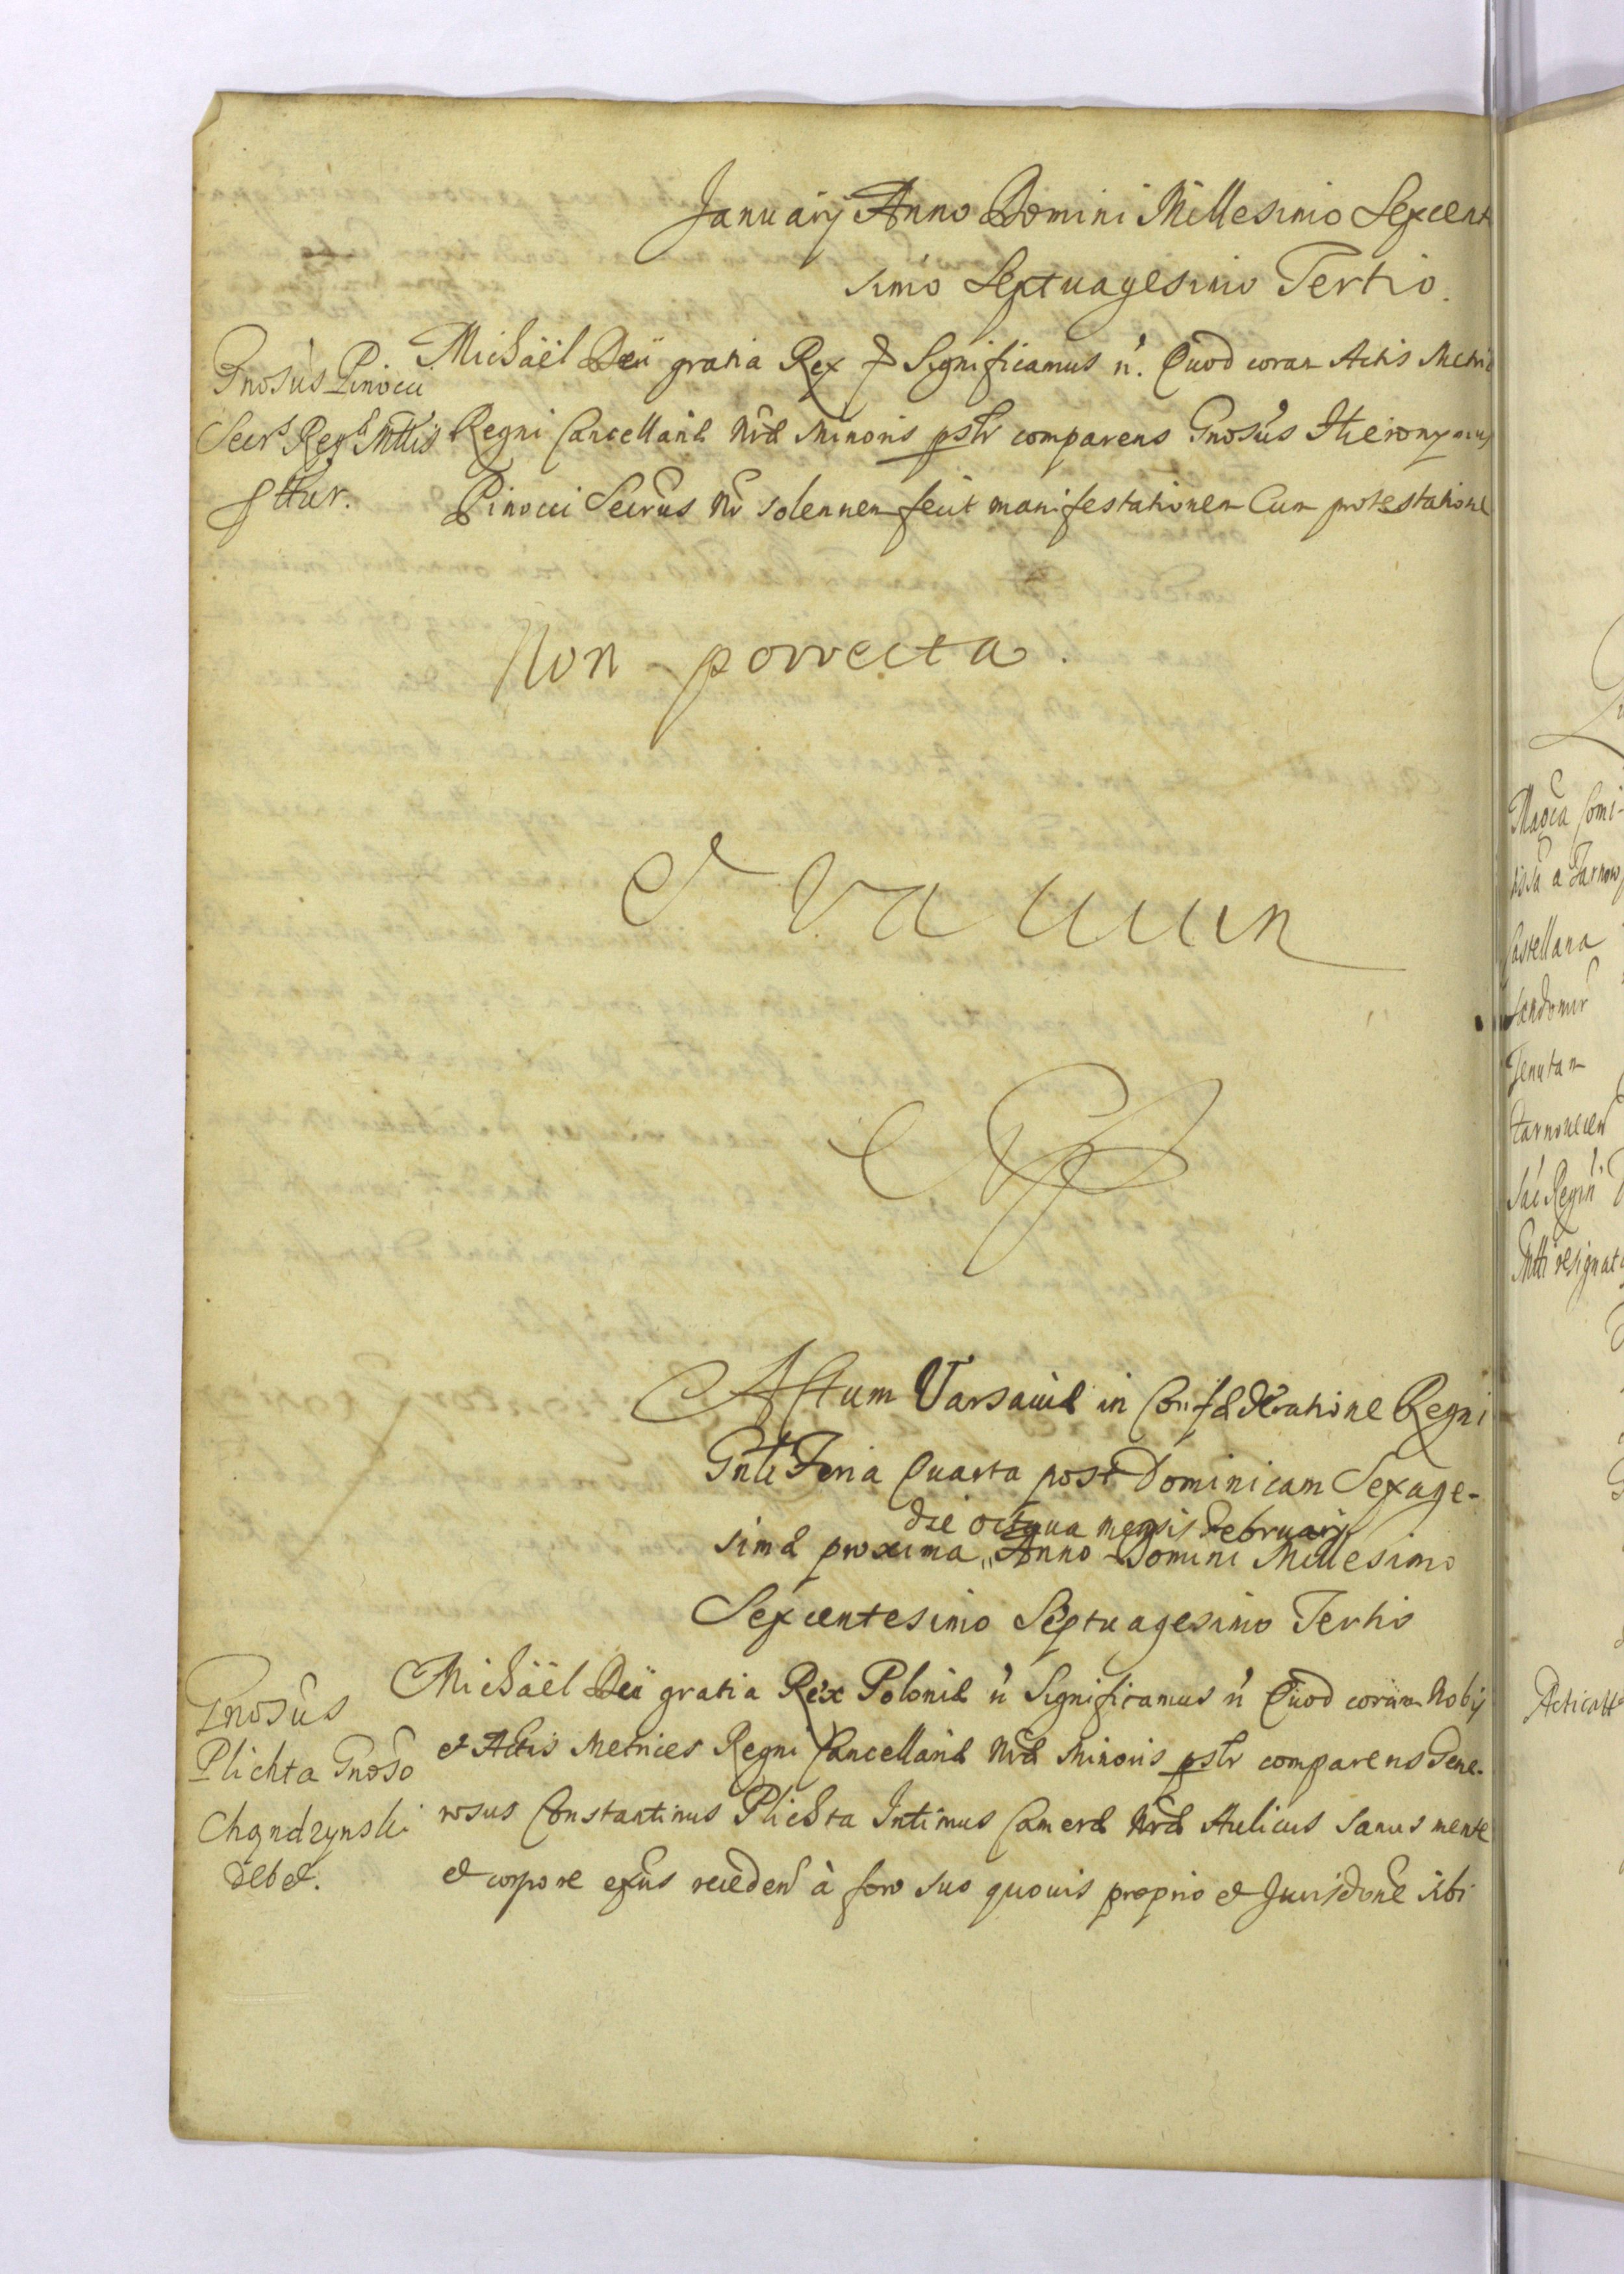 Januarij Anno Domini Millesimo Sexcent
simo Septuagesimo Tertio.
Gnosus Pinocci
Secrs Regs Mttis
Michaël Dei gratia Rex Significamus n. Quod coram Actis Metric
Regni Cancellariæ Nræ Minoris pstr comparens Gnosus Hieronymus
Pinocci Secrius Nr solennem fecit manifestationem Cum protestatione
Non porrecta.
Vacuum
Actum Varsaviæ in Confæderatione Regni
Gnli Feria Quarta post Dominicam Sexage-
die octava mensis Februarij
simæ proxima, Anno Domini Millesimo
Sexcentesimo Septuagesimo Tertio
Gnosus
Plichta Gnoso
Chąndzynski
debet.
Michaël Dei gratia Rex Poloniæ n Significamus n Quod coram Nobis
et Actis Metrices Regni Cancellariæ Nræ Minoris pstr comparens Gene-
rosus Constantinus Plichta Intimus Cameræ Nræ Aulicus sanus mente
et corpore exñs receden à foro suo quovis proprio et Jurisdone sibi
Castellana
Sandomir
Tenutam
Mtti resignat